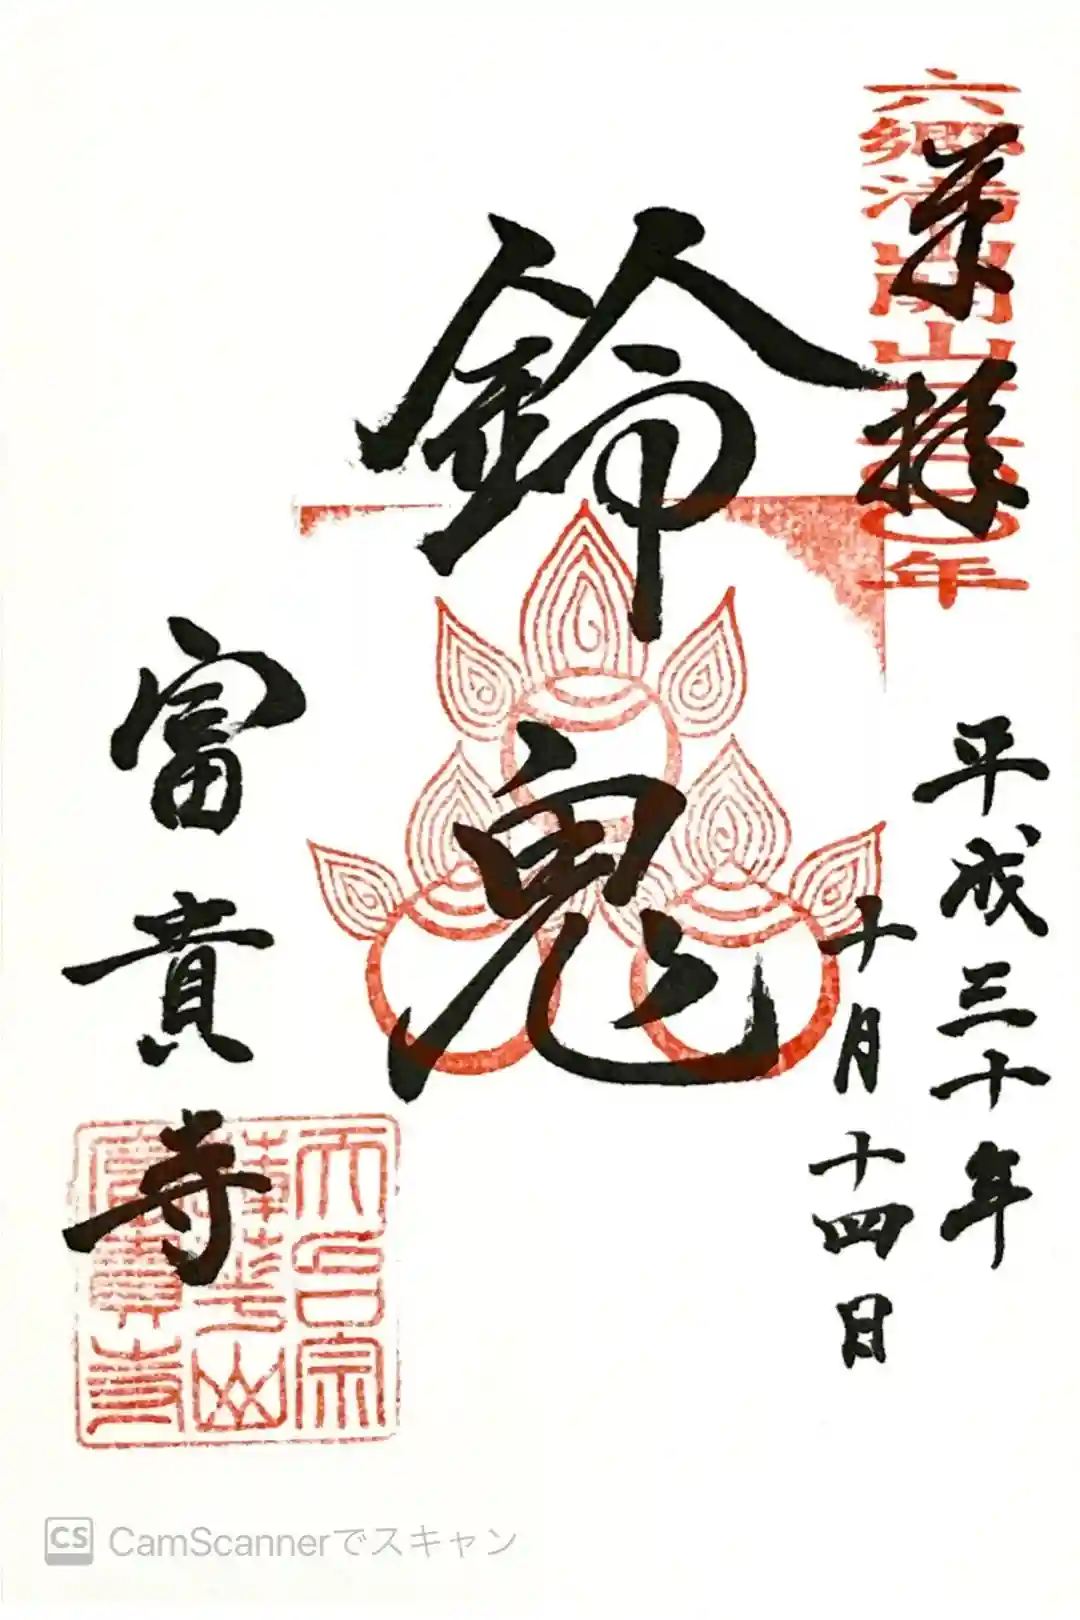 奉拝
六郷満山開山一三〇〇年
平成三十年
十月十四日
鈴鬼
富貴寺
天台宗
蓮華山
富貴寺
CS CamScannerでスキャン